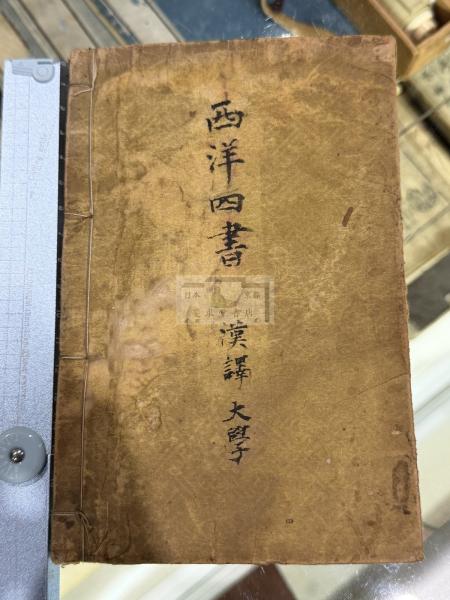 西洋四書
漢譯 大學
日本
京都